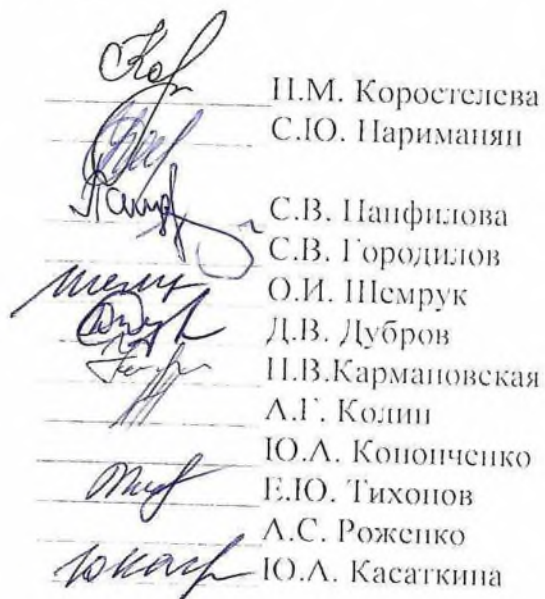 Н.М. Коростелева
С.Ю. Нариманян
С.В. Панфилова
С.В. Городилов
О.И. Шемрук
Д.В. Дубров
Н.В.Кармановская
А.Г. Колин
Ю.А. Кононченко
Е.Ю. Тихонов
А.С. Роженко
Ю.А. Касаткина